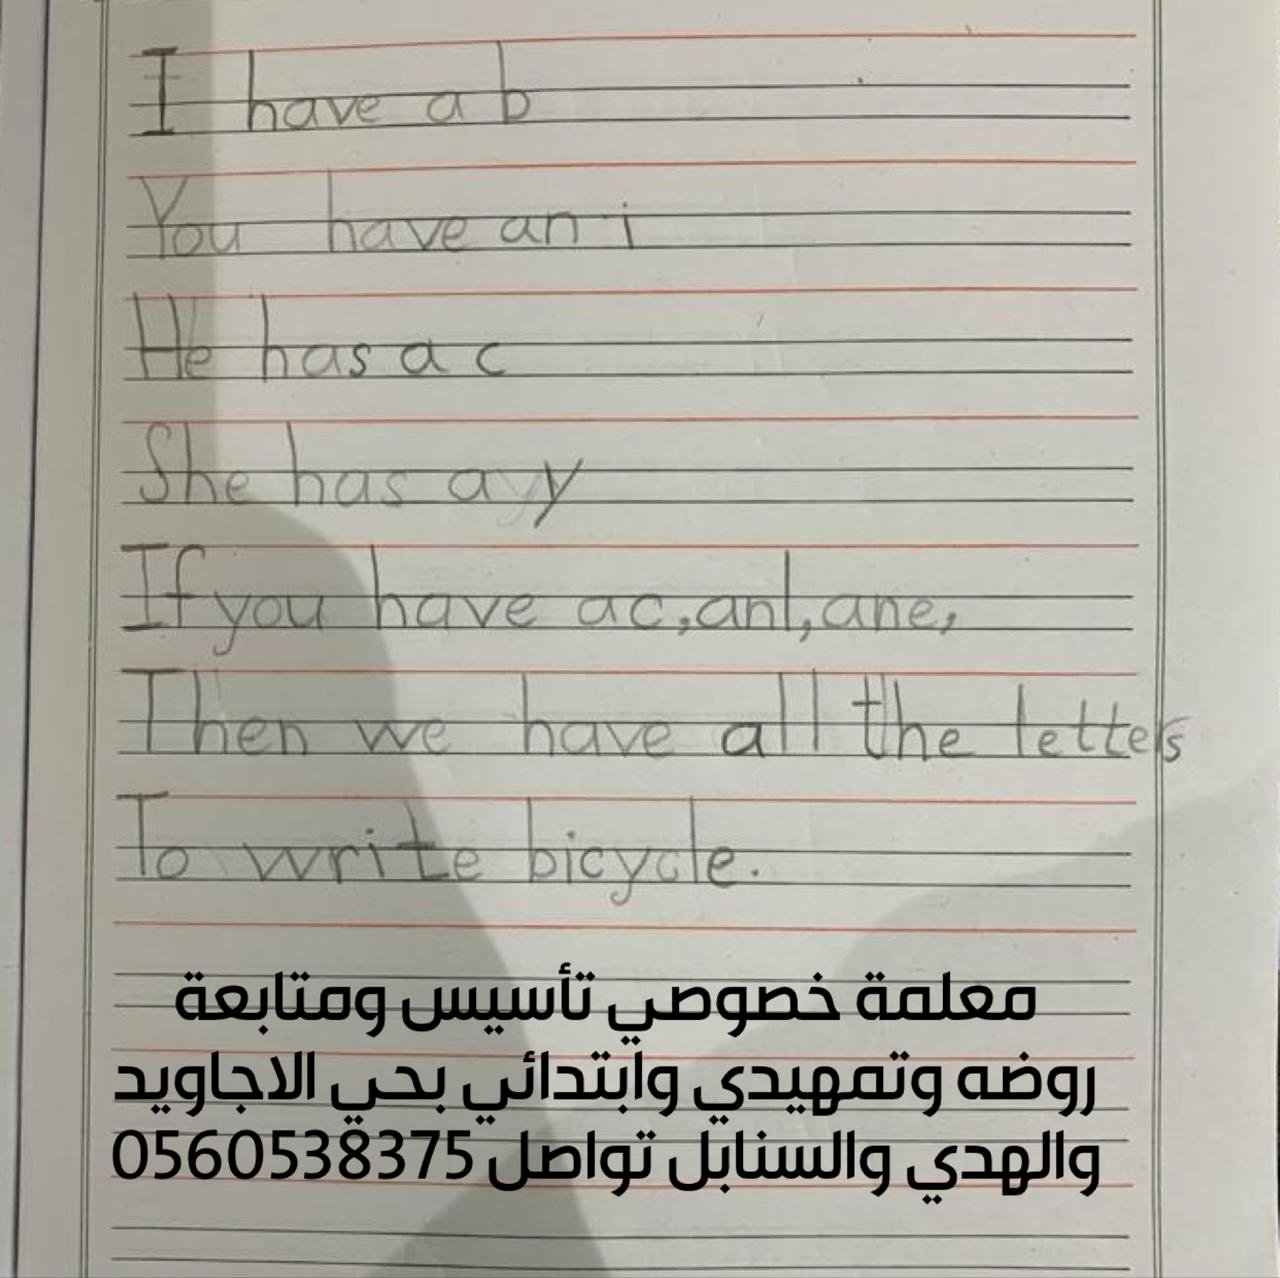 I have a b
You have an i
He has a c
She has a y
If you have a c, an l, an e,
Then we have all the letters
To write bicycle.
معلمة خصوصي تأسيس ومتابعة
روضه وتمهيدي وابتدائي بحي الاجاويد
والهدي والسنابل تواصل 0560538375